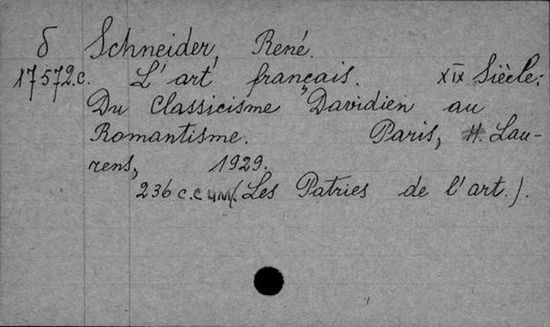 б Schneider, René.
17572.c. L'art français. XIX Siècle:
Du Classicisme Davidien au
Romantisme. Paris, H. Lau-
rens, 1929.
236 с. с илл. (Les Patries de l'art.).